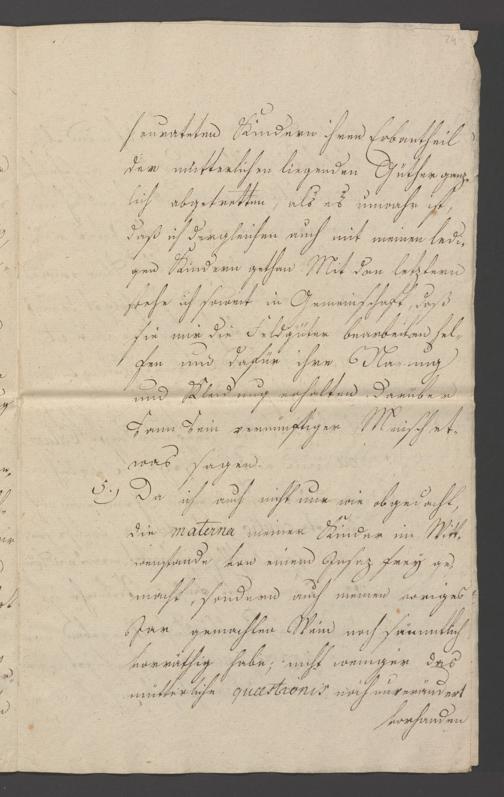 heurateten Kindern ihren Erbantheil
der mütterlichen liegenden Güther gänz-
lich abgetretten, als es unwahr ist,
daß ich dergleichen auch mit meinen ledi-
gen Kindern gethan Mit den letztern
stehe ich soweit in Gemeinschaft, daß
sie mir die Feldgüter bearbeiten hel-
fen und dafür ihre Narung
und Kleidung erhalten darüber
kann kein vernünftiger Mensch et-
was sagen.
5.) Da ich auch nicht nur wie obgedacht,
die materna meiner Kinder im Witt-
wenstande von einem frey ge-
macht, sondern auch meinen voriges
Jar gemachten Wein noch sämmtlich
vorräthig habe; nicht weniger das
mütterliche quæstionis noch unverändert
vorhanden